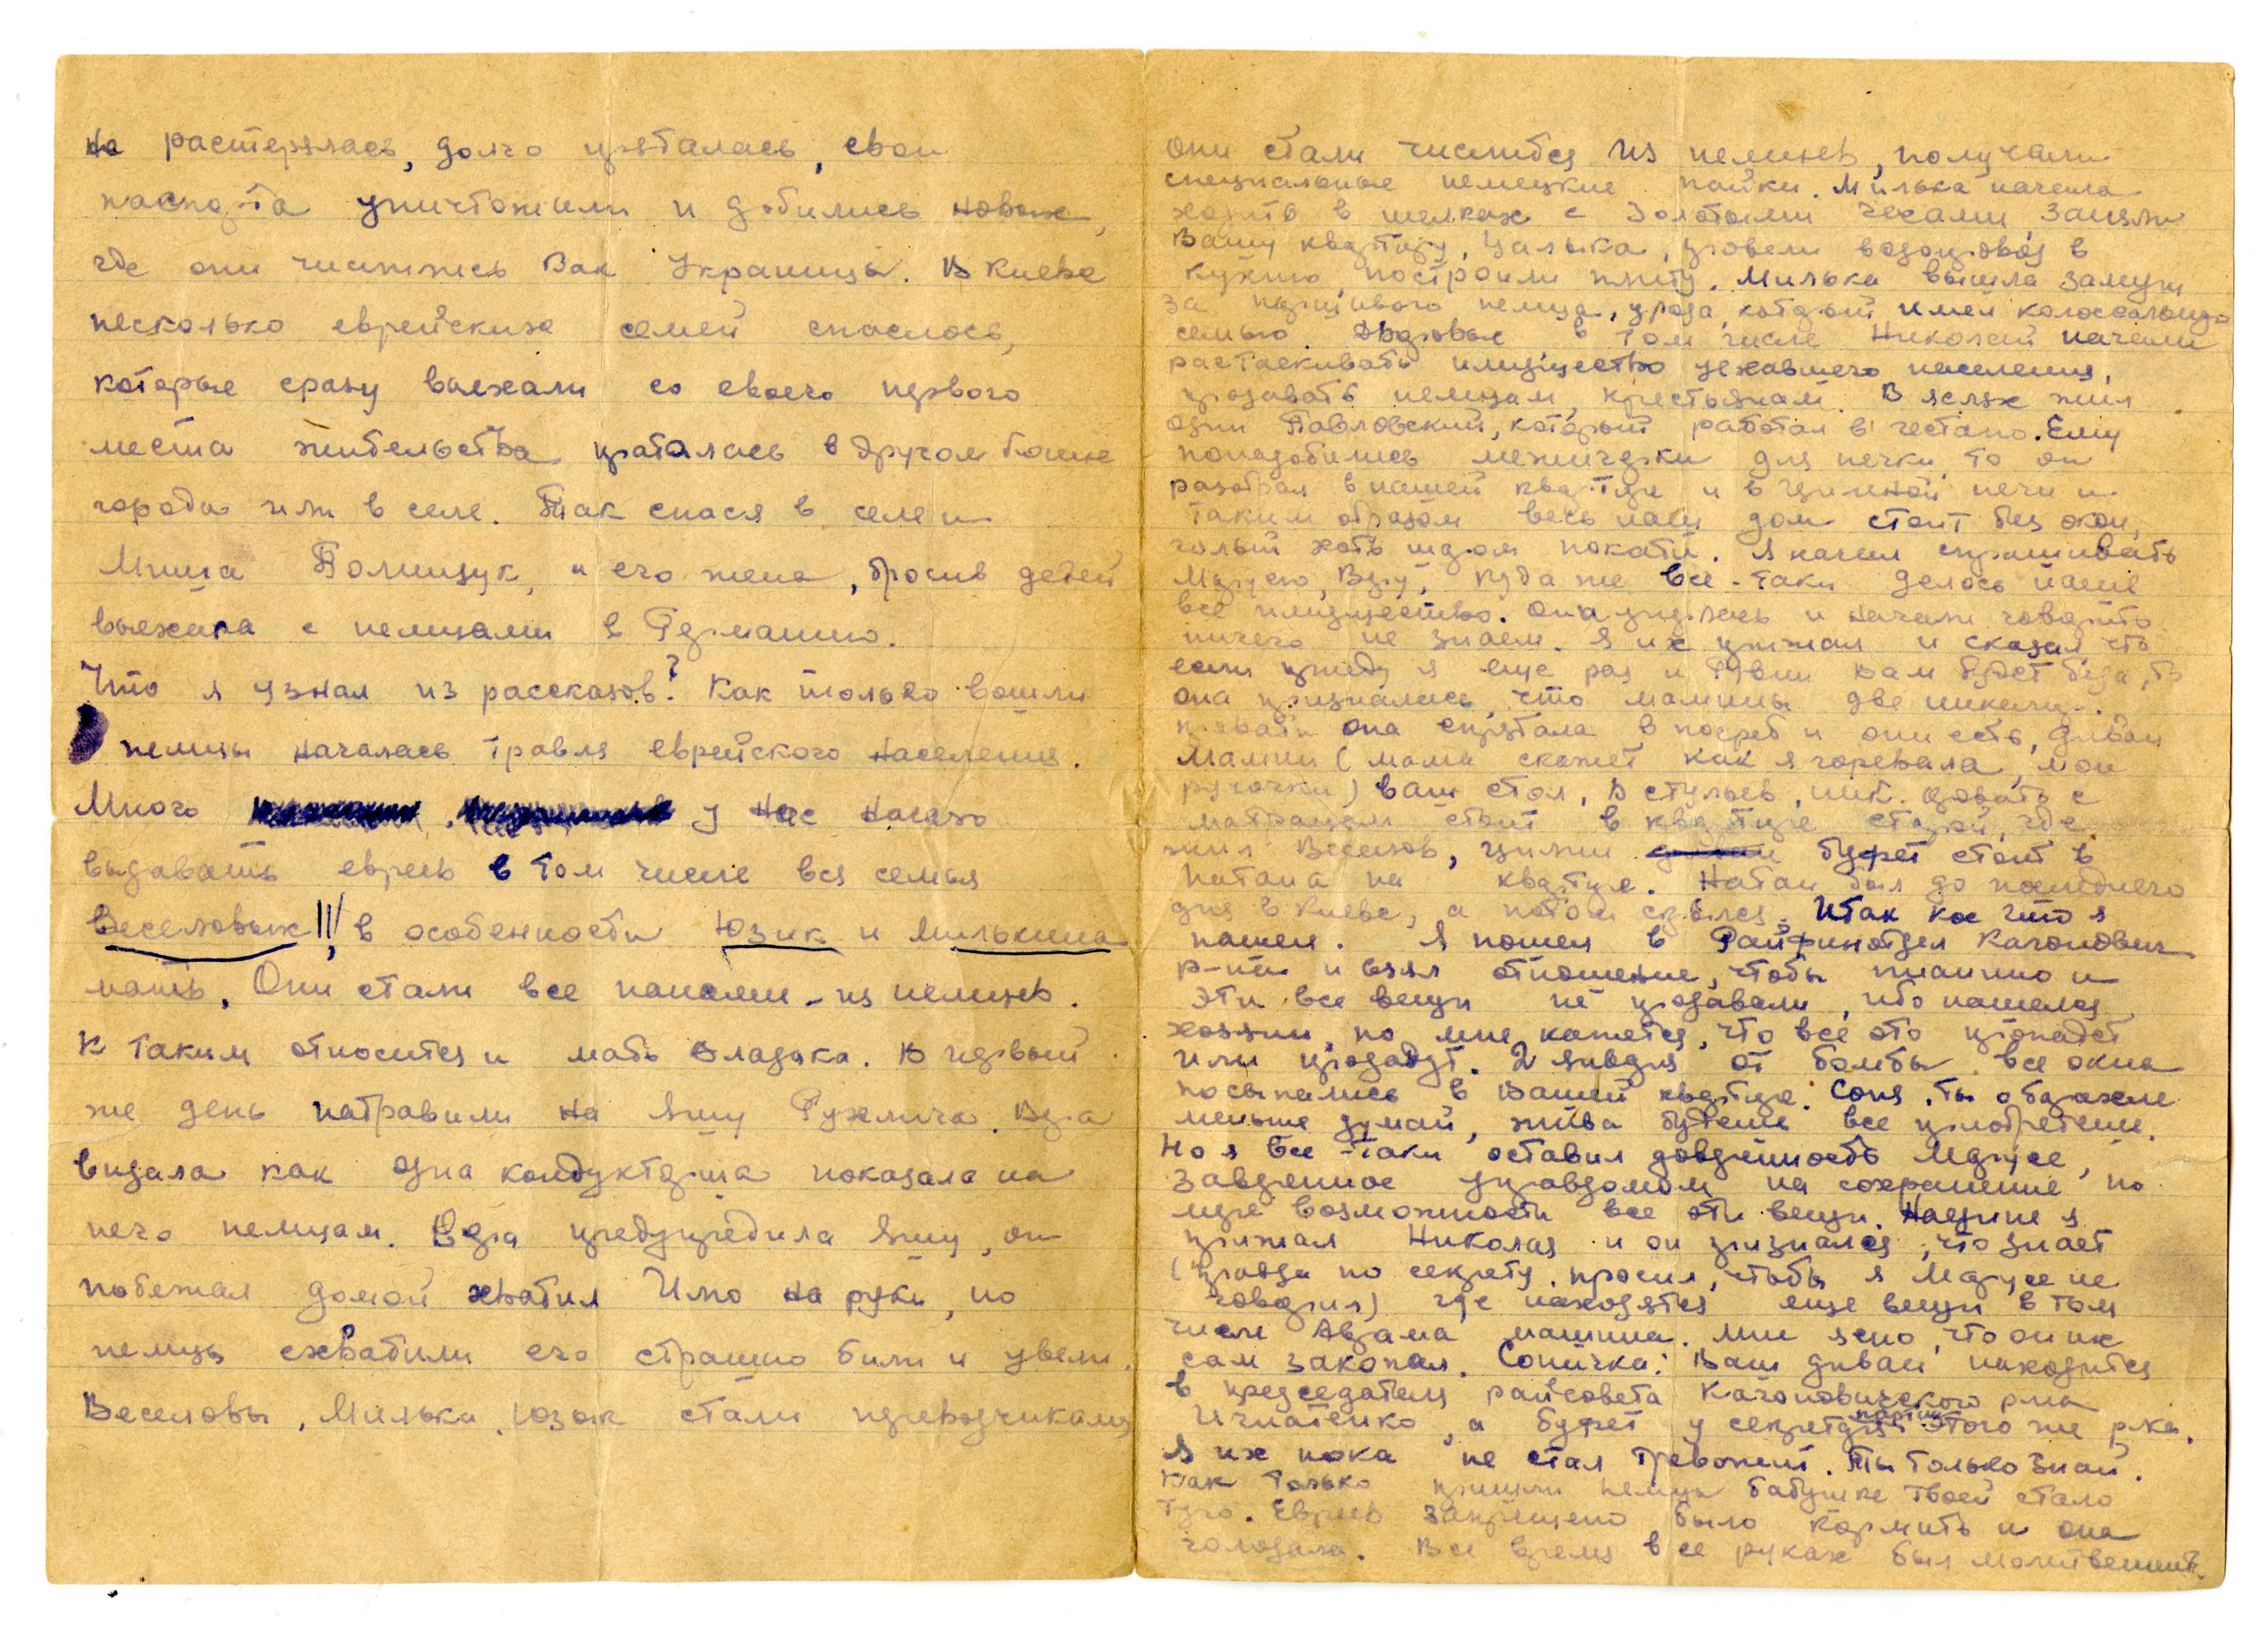 не растерялась, долго пряталась, свои
паспорта уничтожили и добились новых,
где они числились как Украинцы. В Киеве
несколько еврейских семей спаслось,
которые сразу выехали со своего первого
места жительства пряталась в другом
города или в селе. Так спася в селе и
Миша Полищук, и его жена, бросив детей
выехала с немцами в Германию.
Что я узнал из рассказов? Как только вошли
немцы началась травля еврейского населения.
Много у нас начало
выдавать евреев в том числе вся семья
Веселовых!!! в особенности Юзик и Милькина
мать. Они стали все панами - из немцев.
К таким относится и мать Владика. В первый
же день натравили на Яшу Рухлича. Вера
видала как одна кондукторша показала на
него немцам. Вера предупредила Яшу, он
побежал домой схватил Илю на руки, но
немцы схватили его страшно били и увели.
Веселовы, Милька, Юзик стали переводчиками,
они стали числиться из немцев, получали
специальные немецкие пайки. Милька начала
ходить в шелках с золотыми часами заняли
Вашу квартиру, провели водопровод в
кухню, построили плиту. Милька вышла замуж
за паршивого немца, урода, который имел колоссальную
семью. Дворовые в том числе Николай начали
растаскивать имущество уехавшего населения,
продавать немцам, крестьянам. В яслях жил
один Павловский, который работал в гестапо. Ему
понадобились для печки, то он
разобрал в нашей квартире и в печи и
таким образом весь наш дом стоит без окон,
голый хоть шаром покати. Я начал спрашивать
Марусю, Веру, куда же все-таки делось наше
все имущество. Она и начали говорить
ничего не знаем. Я их прижал и сказал что
если приду я еще раз и вам будет беда, то
она призналась, что мамины две никелир.
кровати она спрятала в погреб и они есть, диван
мамин (мама скажет как я горевала, мои
ручочки) ваш стол, 3 стульев, ник. кровать с
матрацом стоит в квартире старой, где
жил Веселов, буфет стоит в
Натана на квартире. Натан был до последнего
дня в Киеве, а потом скрылся. Итак кое что я
нашел. Я пошел в Райфинотдел Каганович.
р-на и взял отношение, чтобы пианино и
эти все вещи не продавали, ибо нашелся
хозяин, но мне кажется, что все это пропадет
или продадут. 2 января от бомбы все окна
посыпались в Вашей квартире. Соня, ты о барахле
меньше думай, жива будешь все приобретешь.
Но я все-таки оставил доверенность Марусе,
заверенное управдомом на сохранение по
мере возможности все эти вещи. Наедине я
прижал Николая и он признался, что знает
(правда по секрету, просил, чтобы я Марусе не
говорил) где находятся еще вещи в том
числе Абрама машина. Мне ясно, что он их
сам закопал. Сонечка: Ваш диван находится
в председателя райсовета Кагановического р-на
Игнатенко, а буфет у секретаря партии этого же р-на.
Я их пока не стал тревожить. Ты только знай.
Как только пришли немцы бабушке твоей стало
туго. Евреев запрещено было кормить и она
голодала. Все время в ее руках был молитвенник.